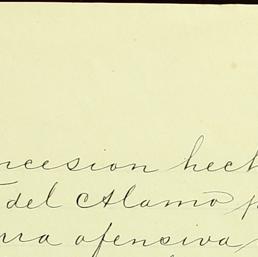 ncesion hech
del Alamo p
rra ofensiva